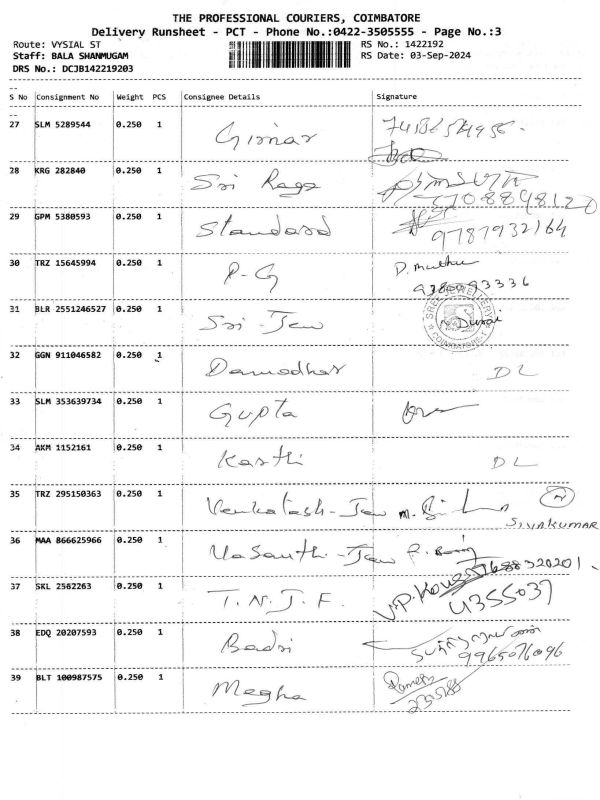 THE PROFESSIONAL COURIERS, COIMBATORE
Delivery Runsheet - PCT - Phone No.:0422-3505555 - Page No.:3
Route: VYSIAL ST RS No.: 1422192
Staff: BALA SHANMUGAM RS Date: 03-Sep-2024
DRS No.: DCJB142219203
--
S No Consignment No Weight PCS Consignee Details Signature
--
27 SLM 5289544 0.250 1 Girnar
28 KRG 282840 0.250 1 Sri Raga
29 GPM 5380593 0.250 1 Standard
9787932164
30 TRZ 15645994 0.250 1 P-G D. Muthu
9380093336
31 BLR 2551246527 0.250 1 Sri-Jew Durai
SREE JEWELLERY
COIMBATORE-1
32 GGN 911046582 0.250 1 Damodhar DL
33 SLM 353639734 0.250 1 Gupta
34 AKM 1152161 0.250 1 Karthi DL
35 TRZ 295150363 0.250 1 Venkatash-Jew
SIVAKUMAR
36 MAA 866625966 0.250 1 Vasanthi-Jew
37 SKL 2562263 0.250 1 T.N.J.F.
4355037
38 EDQ 20207593 0.250 1 Badri
9965076096
39 BLT 100987575 0.250 1 Megha